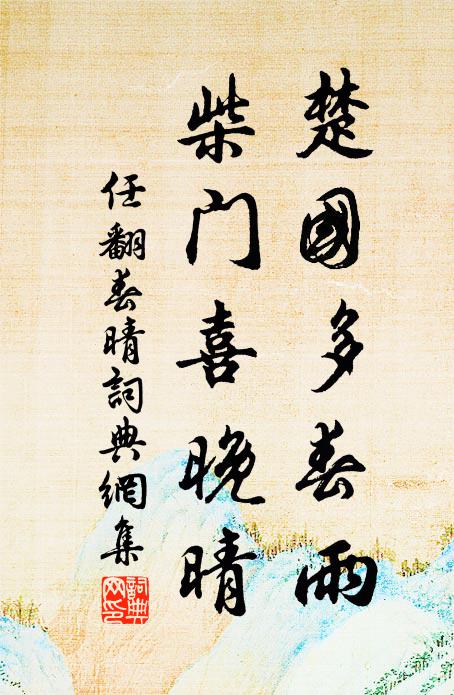 楚國多春雨
柴门喜晚晴
任翻春晴詞典網集
詞典網印